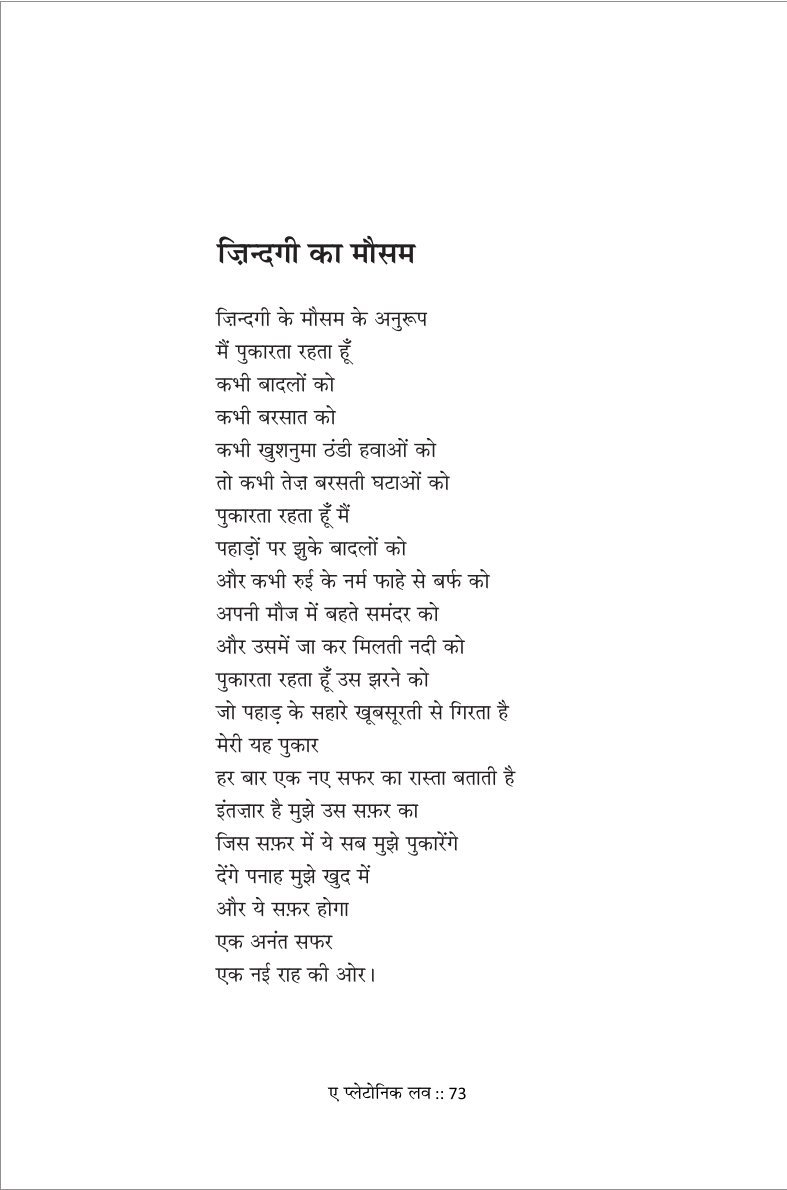 ज़िन्दगी का मौसम
ज़िन्दगी के मौसम के अनुरूप
मैं पुकारता रहता हूँ
कभी बादलों को
कभी बरसात को
कभी खुशनुमा ठंडी हवाओं को
तो कभी तेज़ बरसती घटाओं को
पुकारता रहता हूँ मैं
पहाड़ों पर झुके बादलों को
और कभी रुई के नर्म फाहे से बर्फ को
अपनी मौज में बहते समंदर को
और उसमें जा कर मिलती नदी को
पुकारता रहता हूँ उस झरने को
जो पहाड़ के सहारे खूबसूरती से गिरता है
मेरी यह पुकार
हर बार एक नए सफर का रास्ता बताती है
इंतज़ार है मुझे उस सफ़र का
जिस सफ़र में ये सब मुझे पुकारेंगे
देंगे पनाह मुझे खुद में
और ये सफ़र होगा
एक अनंत सफर
एक नई राह की ओर।
ए प्लेटोनिक लव :: 73